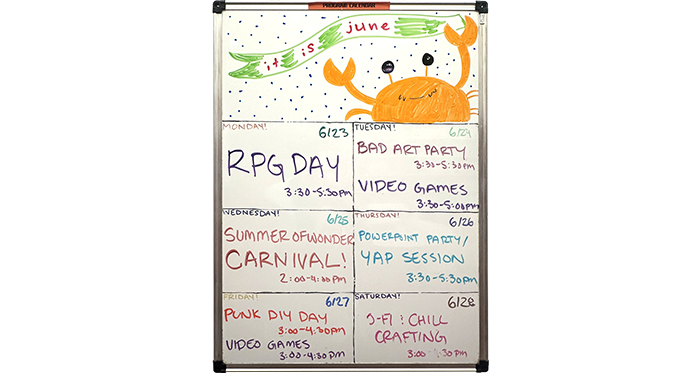 PROGRAM CALENDAR
it is june
MONDAY! 6/23
RPG DAY
3:30-5:30pm
TUESDAY! 6/24
BAD ART PARTY
3:30-5:30pm
VIDEO GAMES
3:30-5:00pm
WEDNESDAY! 6/25
SUMMER OF WONDER
CARNIVAL!
2:00-4:00pm
THURSDAY! 6/26
POWERPOINT PARTY/
YAP SESSION
3:30-5:30pm
FRIDAY! 6/27
PUNK DIY DAY
3:00-4:30pm
VIDEO GAMES
3:00-4:30pm
SATURDAY! 6/28
CHILL
CRAFTING
3:00-5:30pm